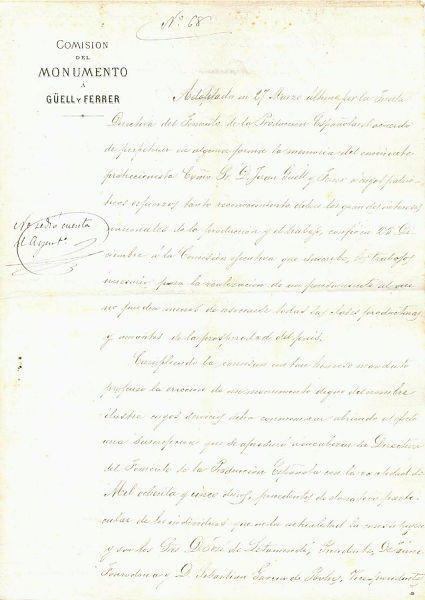 Nº 68
COMISION
DEL
MONUMENTO
Á
GÜELL Y FERRER
Adoptado en 27 Marzo último por la Junta
Directiva del Fomento de la Produccion Española el acuerdo
de perpetuar en alguna forma la memoria del eminente
proteccionista Excmo Sr. D. Juan Güell y Ferrer á cuyos patrió-
ticos esfuerzos tanto reconocimiento deben los grandes intereses
nacionales de la produccion y el trabajo, confió en 22 Di-
No se dió cuenta
al Ayunt.º
ciembre á la Comision ejecutiva que suscribe, los trabajos
necesarios para la realizacion de un pensamiento al que
no pueden menos de asociarse todas las clases productoras
y amantes de la prosperidad del país.
Cumpliendo la comision con tan honroso mandato
la ereccion de un monumento digno del nombre
ilustre cuyos servicios debe conmemorar abriendo al efecto
una suscripcion que se apresuró á encabezar la Directiva
del Fomento de la Produccion Española con la cantidad de
Mil ochenta y cinco duros, procedentes de donativo parti-
cular de los individuos que en la actualidad la constituyen
y son los Sres D. José de Letamendi, Presidente, D. Jaime
y D. Sebastian Vice-presidentes